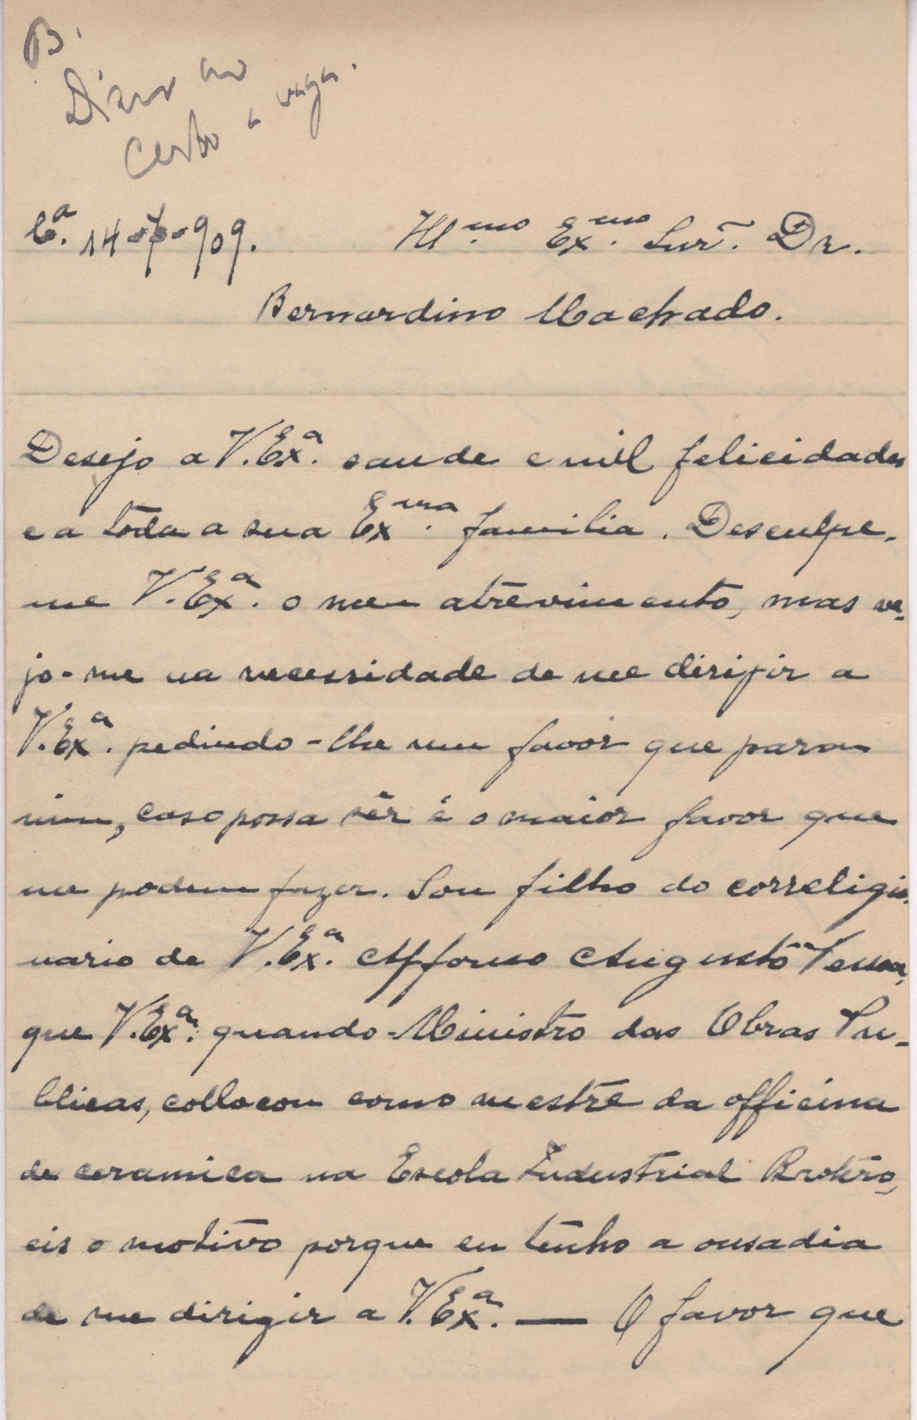 B.
certo a vaga.
C.ª 14-7-909.
Ill.mo Ex.mo Snr. Dr.
Bernardino Machado.
Desejo a V. Ex.ª saude e mil felicidades
e a toda a sua Ex.ma familia. Desculpe-
me V. Ex.ª o meu atrevimento, mas ve-
jo-me na necessidade de me dirijir a
V. Ex.ª pedindo-lhe um favor que para
mim, caso possa sêr é o maior favor que
me podem fazer. Sou filho do correligio-
nario de V. Ex.ª Affonso Augusto Pessoa,
que V. Ex.ª quando Ministro das Obras Pu-
blicas, collocou como mestre da officina
de ceramica na Escola Industrial Brotero,
eis o motivo porque eu tenho a ousadia
de me dirigir a V. Ex.ª. — O favor que